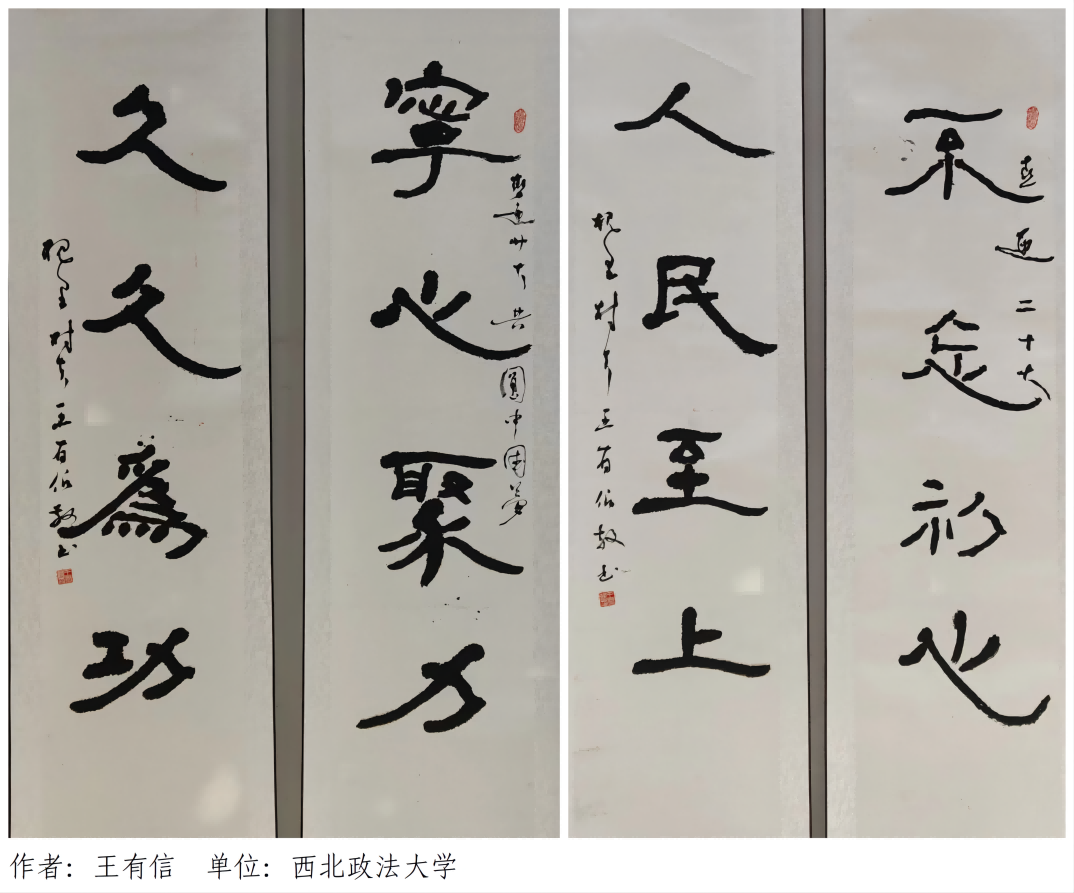 喜迎二十大
不忘初心
人民至上
槐里村夫王有信敬书
喜迎廿大共圓中國夢
寧心聚力
久久爲功
槐里村夫王有信敬书
作者：王有信 单位：西北政法大学